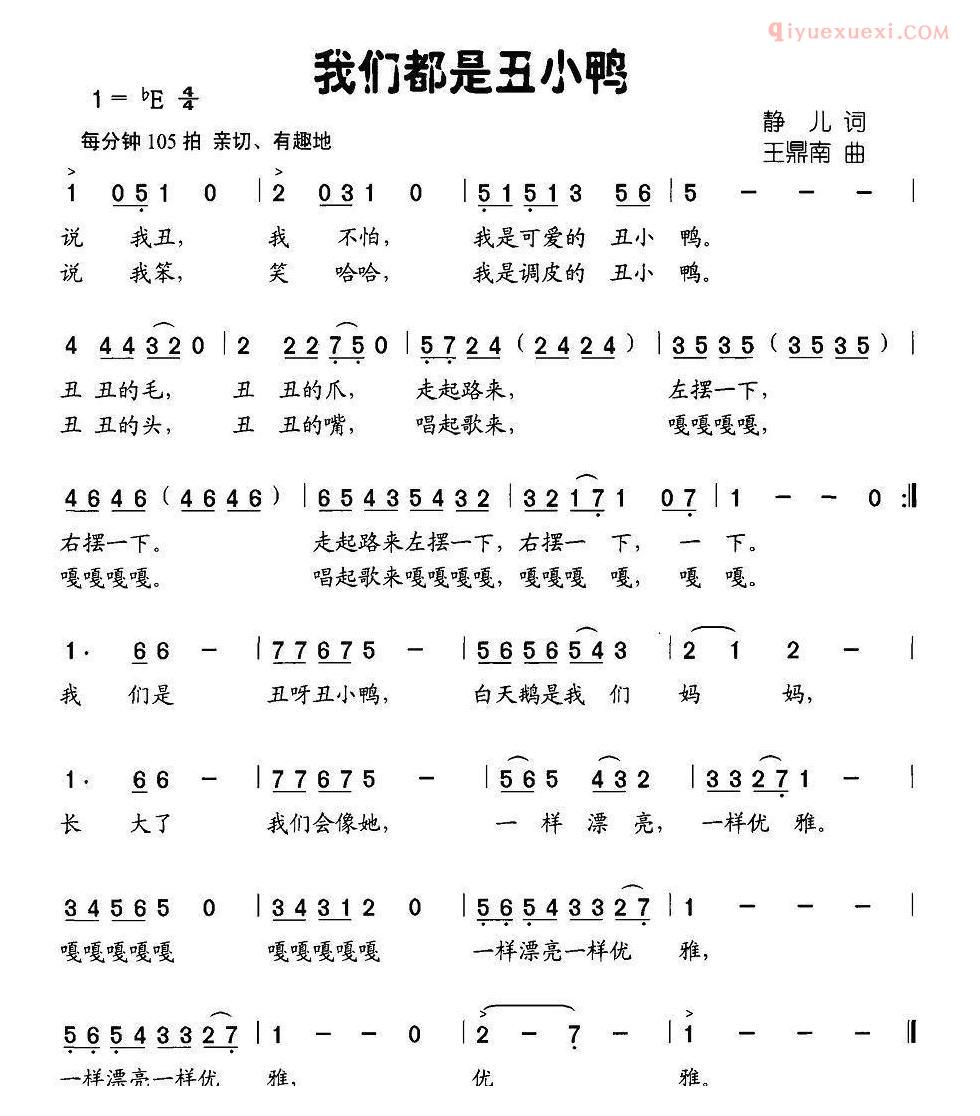 Qiyuexuexi.COM
我们都是丑小鸭
1 = ♭E 4/4
静 儿 词
每分钟 105 拍 亲切、有趣地
王鼎南 曲
1 0 5 1 0 | 2 0 3 1 0 | 5 1 5 1 3 5 6 | 5 – – – |
说 我丑， 我 不怕， 我是可爱的 丑小 鸭。
说 我笨， 笑 哈哈， 我是调皮的 丑小 鸭。
4 4 4 3 2 0 | 2 2 2 7 5 0 | 5 7 2 4 ( 2 4 2 4 ) | 3 5 3 5 ( 3 5 3 5 ) |
丑 丑的毛， 丑 丑的爪， 走起路来， 左摆一下，
丑 丑的头， 丑 丑的嘴， 唱起歌来， 嘎嘎嘎嘎，
4 6 4 6 ( 4 6 4 6 ) | 6 5 4 3 5 4 3 2 | 3 2 1 7 1 0 7 | 1 – – 0 :‖
右摆一下。 走起路来左摆一下， 右摆一 下， 一 下。
嘎嘎嘎嘎。 唱起歌来嘎嘎嘎嘎， 嘎嘎嘎 嘎， 嘎 嘎。
1 · 6 6 – | 7 7 6 7 5 – | 5 6 5 6 5 4 3 | 2 1 2 – |
我 们是 丑呀丑小鸭， 白天鹅是我 们 妈 妈，
1 · 6 6 – | 7 7 6 7 5 – | 5 6 5 4 3 2 | 3 3 2 7 1 – |
长 大了 我们会像她， 一 样 漂 亮， 一样优 雅。
3 4 5 6 5 0 | 3 4 3 1 2 0 | 5 6 5 4 3 3 2 7 | 1 – – – |
嘎嘎嘎嘎嘎 嘎嘎嘎嘎嘎 一样漂亮一样优 雅，
5 6 5 4 3 3 2 7 | 1 – – 0 | 2 – 7 – | 1 – – – ‖
一样漂亮一样优 雅， 优 雅。